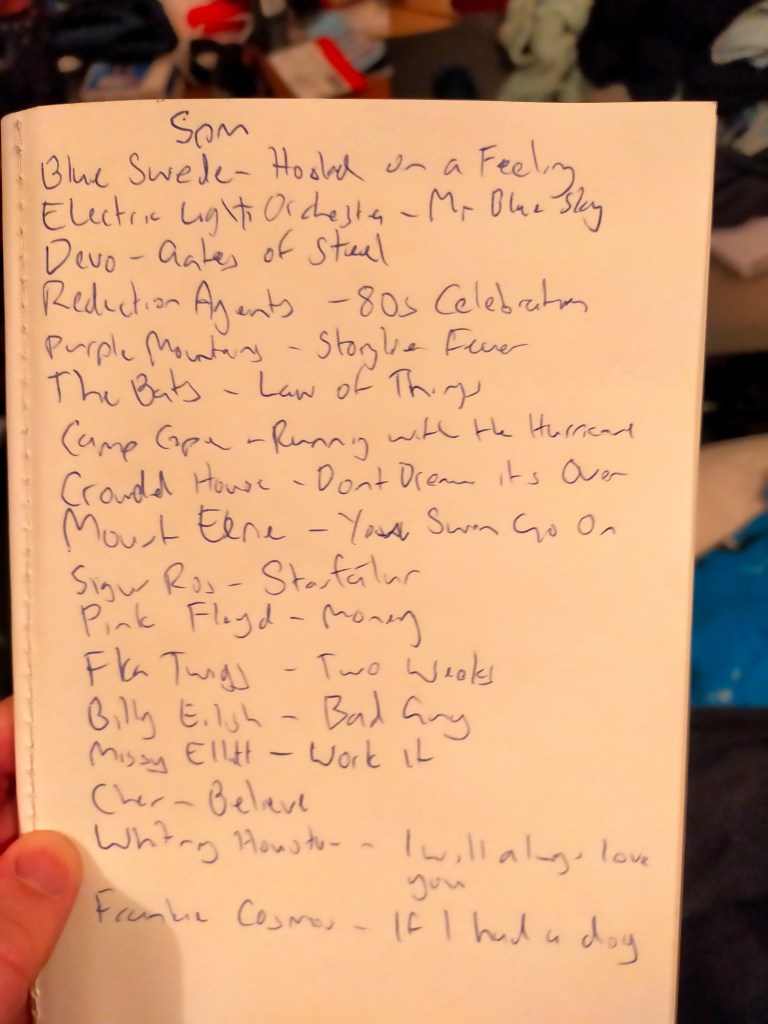 5pm
Blue Swede - Hooked on a Feeling
Electric Light Orchestra - Mr Blue Sky
Devo - Gates of Steel
Reduction Agents - 80s Celebration
Purple Mountains - Storyline Fever
The Bats - Law of Things
Camp Cope - Running with the Hurricane
Crowded House - Dont Dream its Over
Mount Eerie - Swan Go On
Sigur Ros - Starálfur
Pink Floyd - Money
Fka Twigs - Two Weeks
Billy Eilish - Bad Guy
Missy Elliott - Work it
Cher - Believe
Whitney Houston - I will always love
you
Frankie Cosmos - If I had a dog